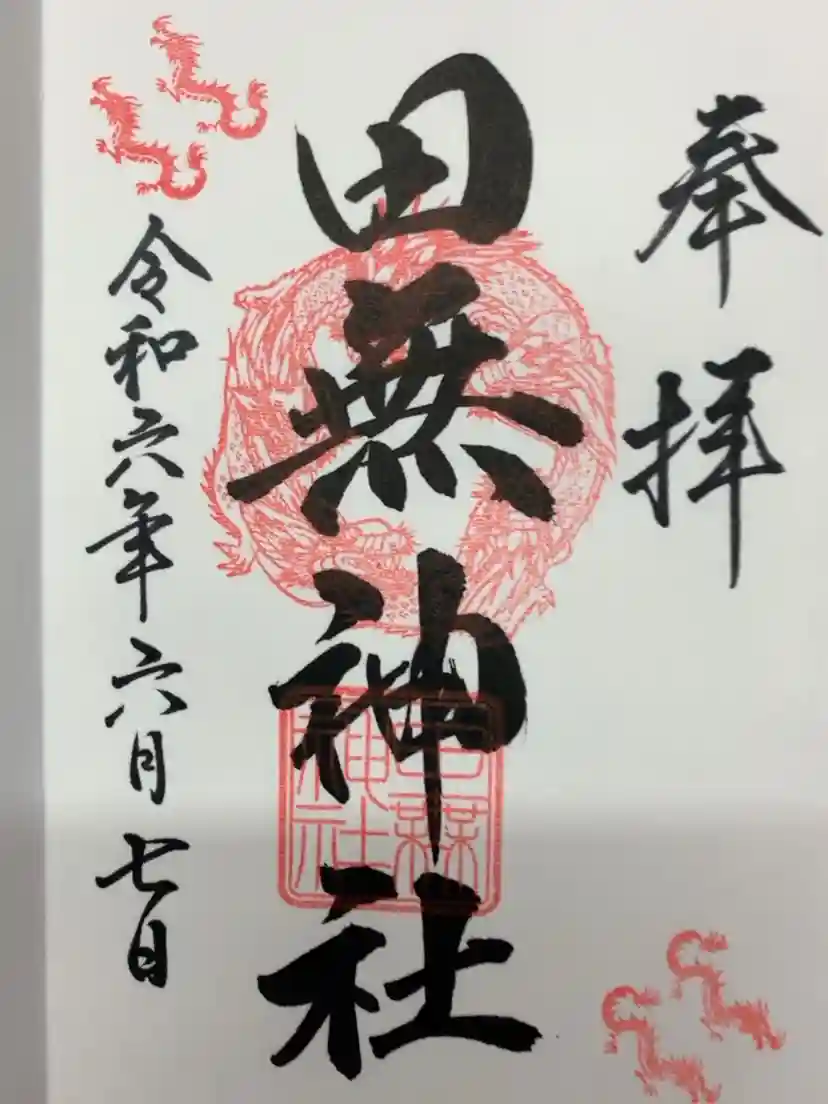 奉拝
田無神社
田無神社
令和六年六月七日